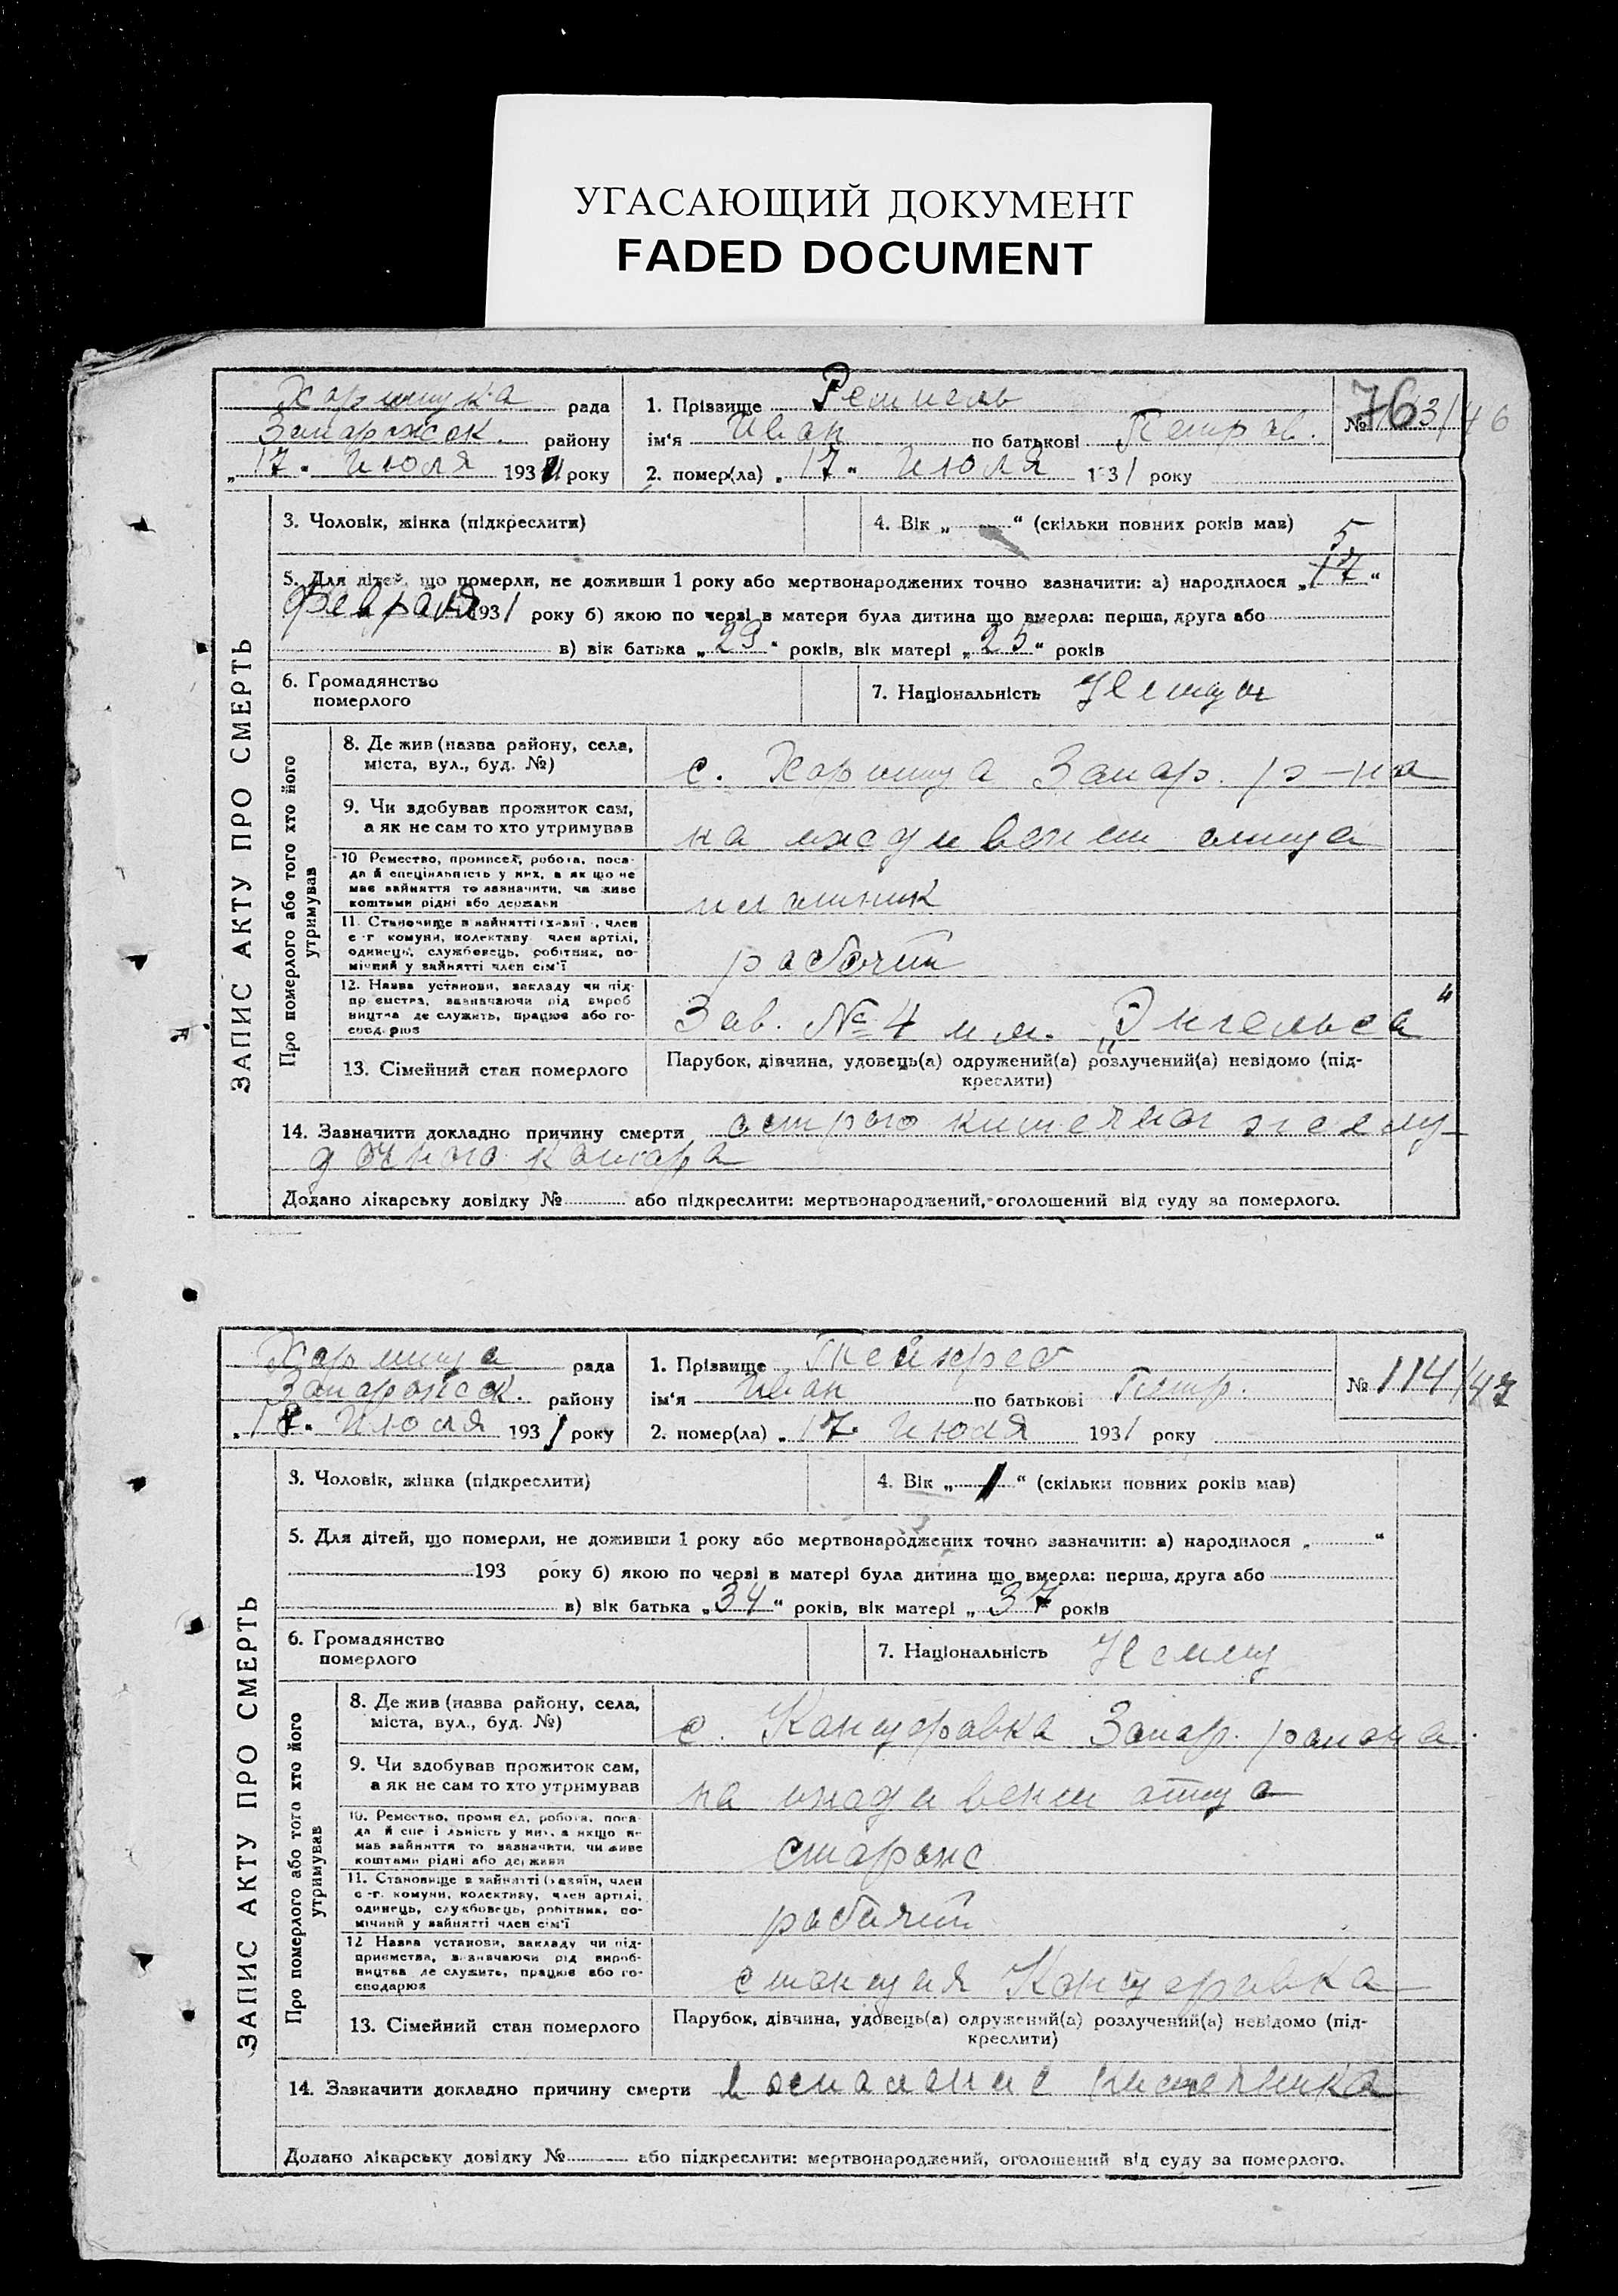 УГАСАЮЩИЙ ДОКУМЕНТ
FADED DOCUMENT
рада
1. Прізвище
№ 113/46
76
Запорожск. району
ім'я Иван по батькові Петров.
„17“ Июля 1931 року
2. помер(ла) „17“ Июля 1931 року
ЗАПИС АКТУ ПРО СМЕРТЬ
3. Чоловік, жінка (підкреслити)
4. Вік „ “ (скільки повних років мав)
5
5. Для дітей, що померли, не доживши 1 року або мертвонароджених точно зазначити: а) народилося „17“
Февраля 1931 року б) якою по черзі в матери була дитина що вмерла: перша, друга або
в) вік батька „29“ років, вік матері „25“ років
6. Громадянство
померлого
7. Національність Немец
Про померлого або того хто його
утримував
8. Де жив (назва району, села,
міста, вул., буд. №)
с. Хортица Запор. р-на
9. Чи здобував прожиток сам,
а як не сам то хто утримував
на иждивении отца
10 Ремество, промисел, робота, поса-
да й спеціяльність у них, а як що не
має зайняття то зазначити, чи живе
коштами рідні або держави
11. Становище в зайнятті (хазяї , член
с -г комуни, колективу член артілі,
одинець, службовець, робітник, по-
мічний у зайнятті член сім'ї
рабочий
12. Назва установи, закладу чи під-
пр ємства, зазначаючи рід вироб
ництва де служить, працює або го-
спод рює
Зав. № 4 им. „Энгельса“
13. Сімейний стан померлого
Парубок, дівчина, удовець(а) одружений(а) розлучений(а) невідомо (під-
креслити)
14. Зазначити докладно причину смерти острого кишечно желу
дочного катара
Додано лікарську довідку № або підкреслити: мертвонароджений, оголошений від суду за померлого.
Хортица рада
1. Прізвище
№ 114/47
Запорожск. району
ім'я Иван по батькові Петр.
„18“ Июля 1931 року
2. помер(ла) „17“ Июля 1931 року
ЗАПИС АКТУ ПРО СМЕРТЬ
3. Чоловік, жінка (підкреслити)
4. Вік „1“ (скільки повних років мав)
5. Для дітей, що померли, не доживши 1 року або мертвонароджених точно зазначити: а) народилося „ “
193 року б) якою по черзі в матері була дитина що вмерла: перша, друга або
в) вік батька „34“ років, вік матері „37 років
6. Громадянство
померлого
7. Національність Немец
Про померлого або того хто його
утримував
8. Де жив (назва району, села,
міста, вул., буд. №)
с. Канцеровка Запор. района
9. Чи здобував прожиток сам,
а як не сам то хто утримував
на иждивении отца
10. Ремество, проми ел, робота, поса-
да й спе і льність у них, а якщо не
має зайняття то зазначити, чи живе
коштами рідні або держави
сторож
11. Становище в зайнятті (хазяїн, член
с -г. комуни, колективу, член артілі,
одинець, службовець, робітник, по-
мічний у зайнятті член сім'ї
рабочий
12 Назва установи, закладу чи під-
приємства, зазначаючи рід вироб-
ництва де служить, працює або го-
сподарює
станция Канцеровка
13. Сімейний стан померлого
Парубок, дівчина, удовець(а) одружений(а) розлучений(а) невідомо (під-
креслити)
14. Зазначити докладно причину смерти воспаление кишечника
Додано лікарську довідку № або підкреслити: мертвонароджений, оголошений від суду за померлого.